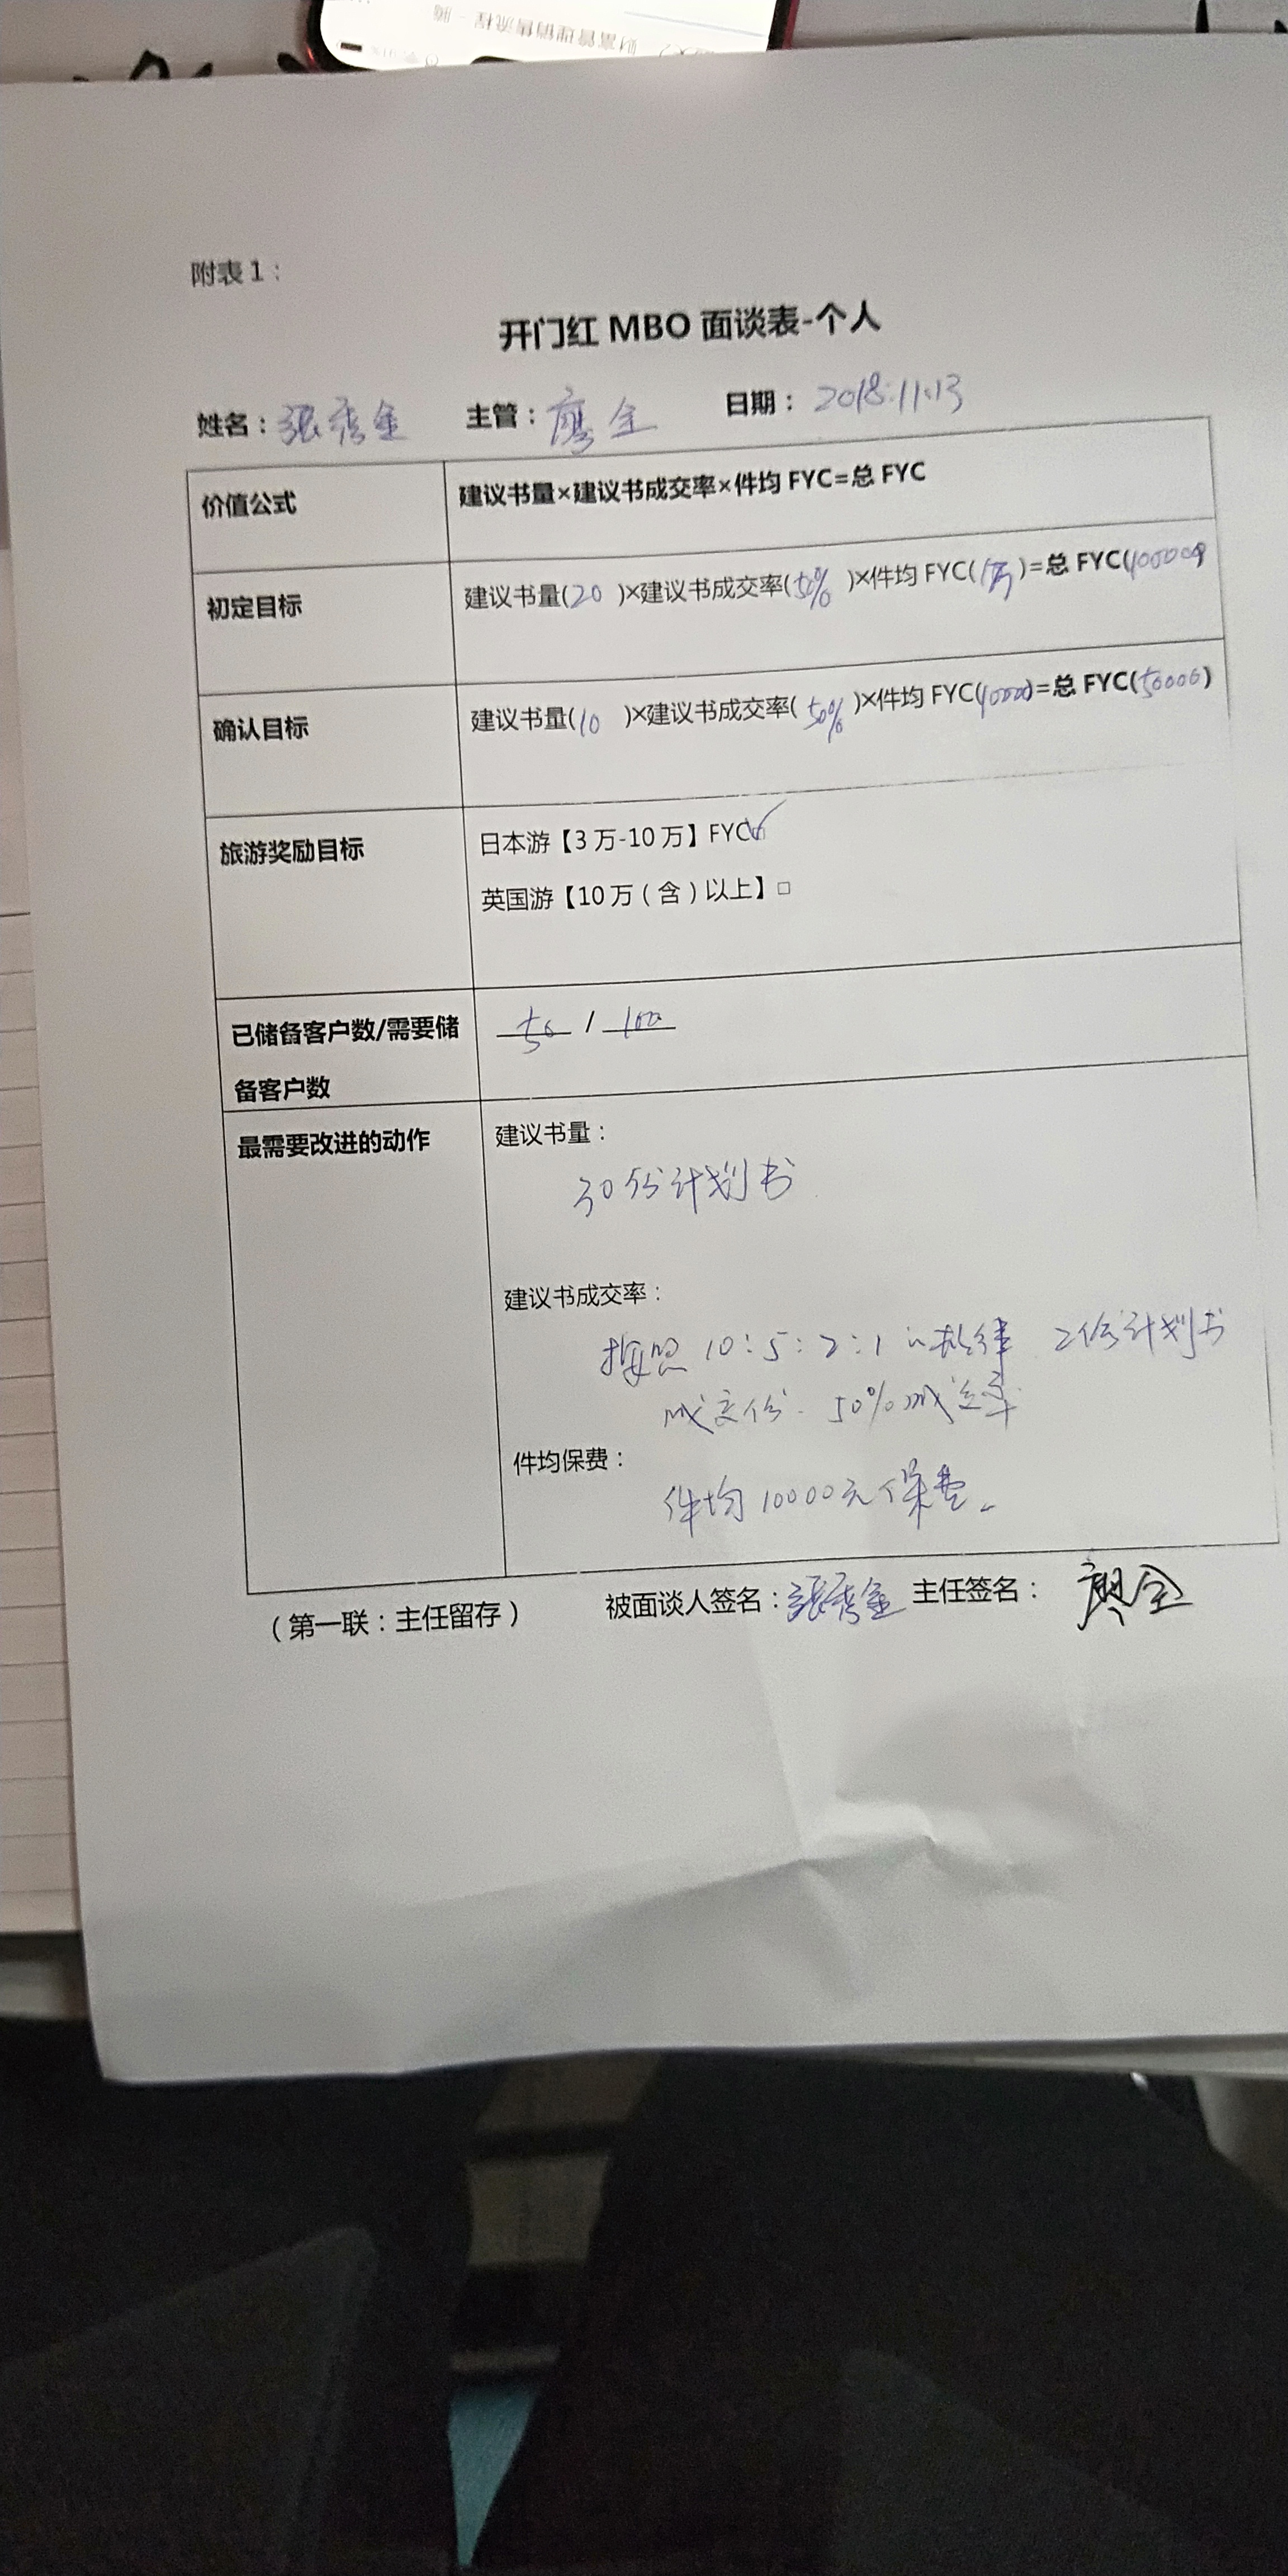 附表1：
开门红 MBO 面谈表-个人
姓名：張秀金 主管：廖全 日期：2018.11.13
价值公式 建议书量×建议书成交率×件均 FYC=总 FYC
初定目标 建议书量(20 )×建议书成交率(50% )×件均 FYC(1万)=总 FYC(
确认目标 建议书量(10 )×建议书成交率(50% )×件均 FYC( )=总 FYC(50000)
旅游奖励目标 日本游【3 万-10 万】FYC✓
英国游【10 万（含）以上】□
已储备客户数/需要储 50 / 100
备客户数
最需要改进的动作 建议书量：
30份计划书
建议书成交率：
按照 10:5:2:1 2份计划书
成交 份. 50%成交率
件均保费：
件均10000元保费。
（第一联：主任留存） 被面谈人签名：張秀金 主任签名： 廖全